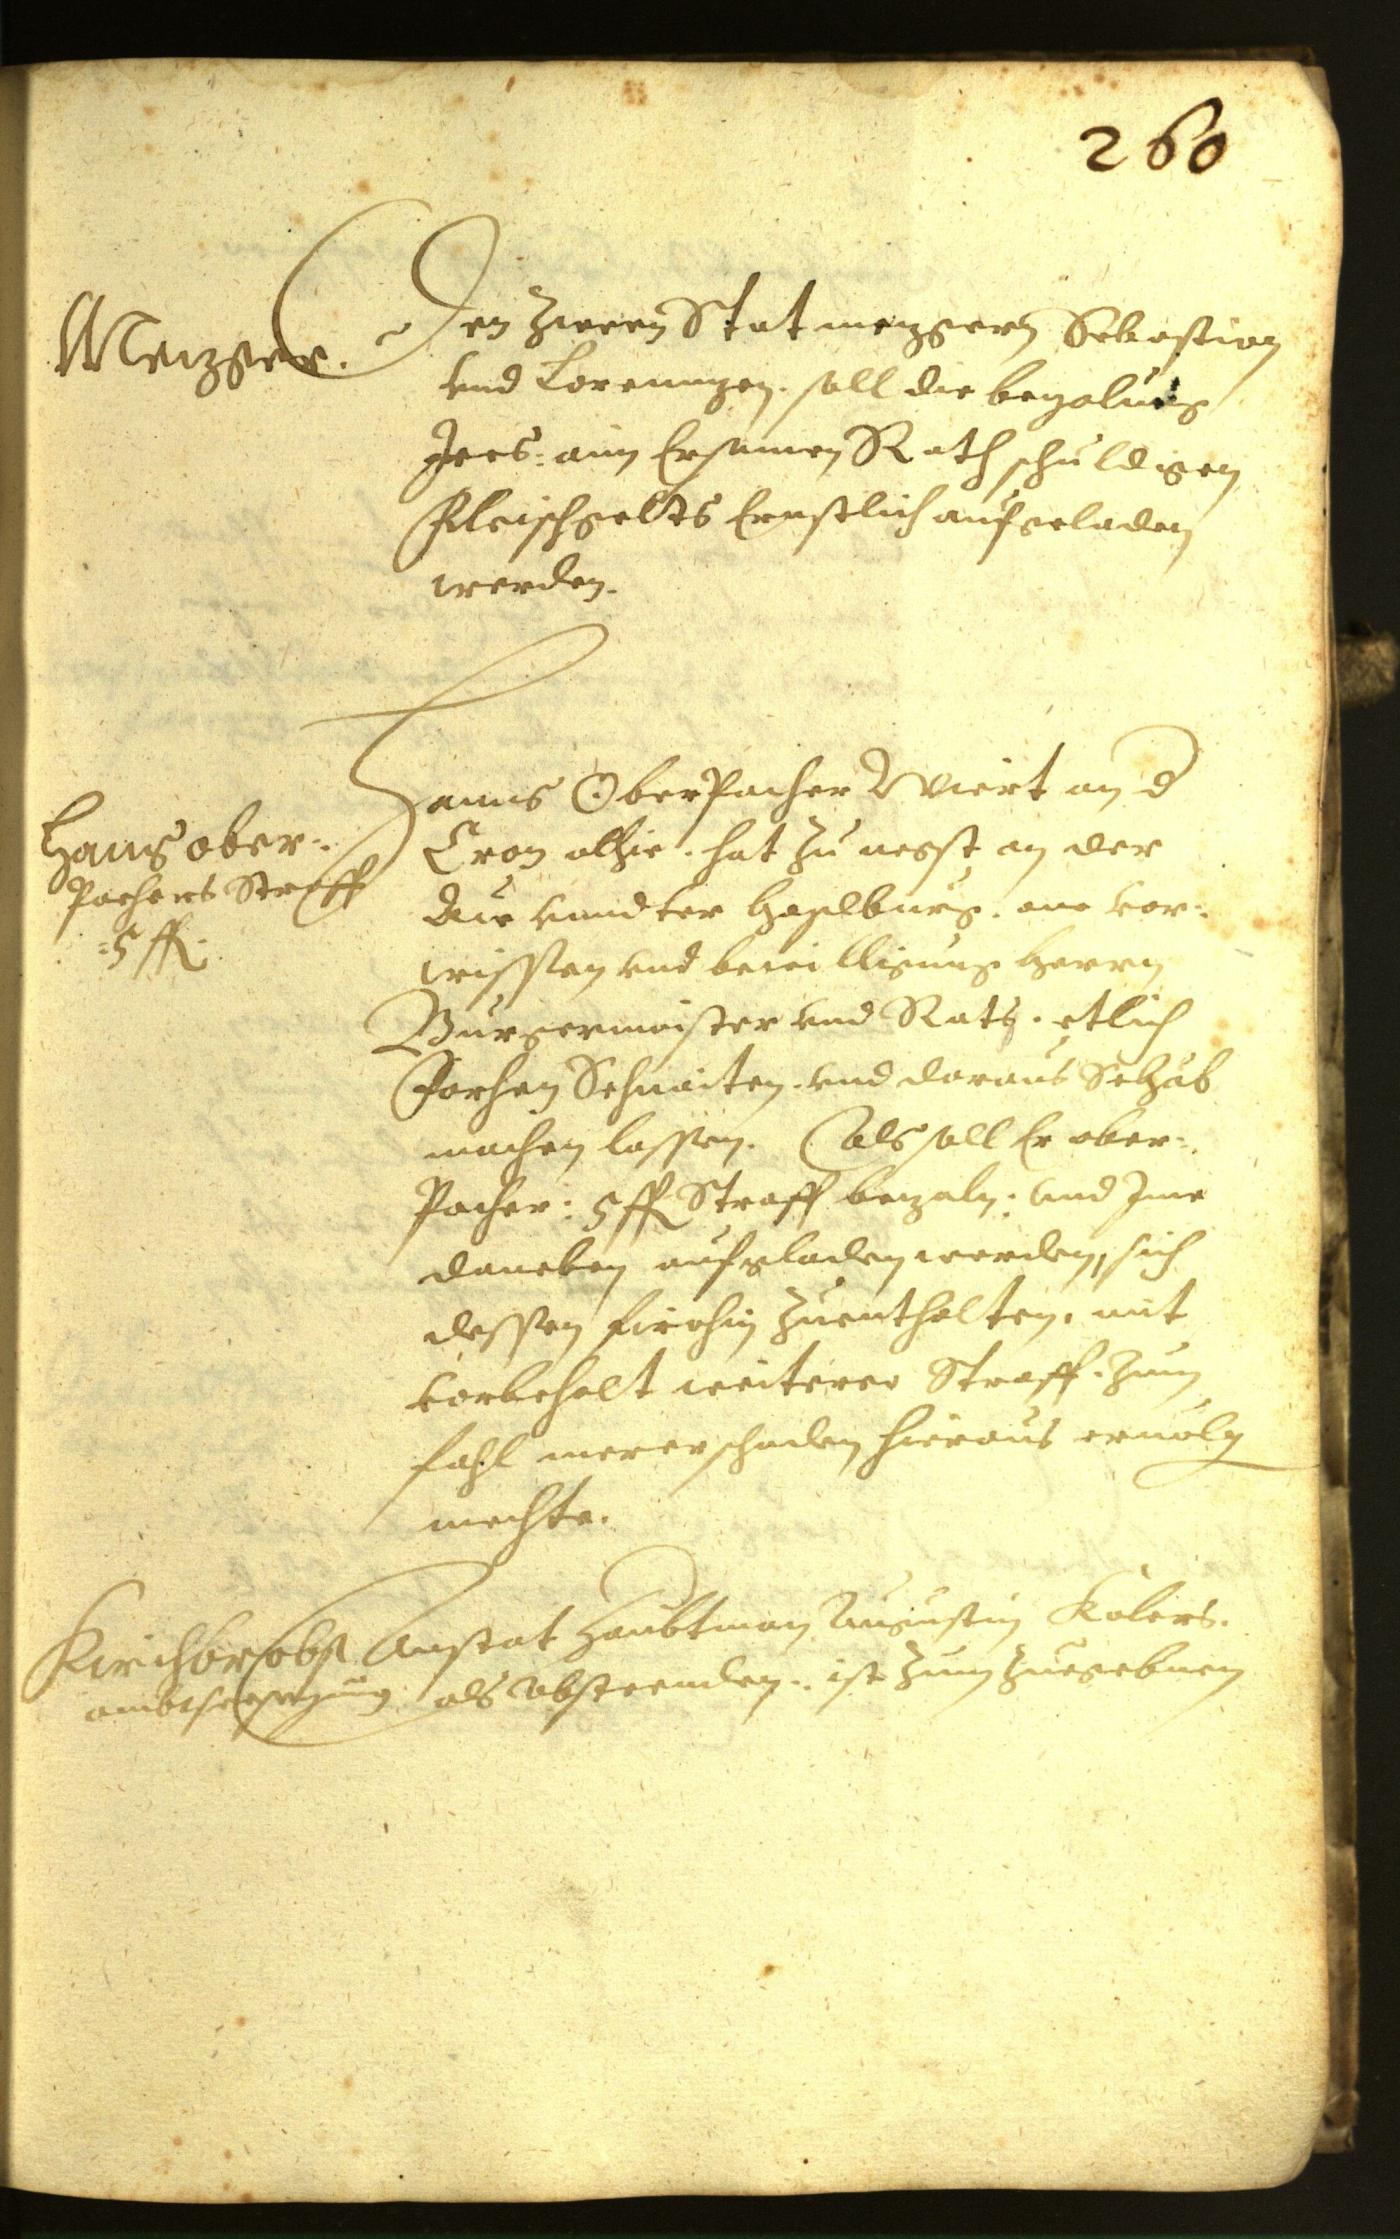 260
Metzger.
Den zween Stat metzgern Sebastian
vnd Lorenntzen. soll die bezalung
Ires: ain Ersamen Rath schuldigen
Fleischgelts Ernstlich aufgeladen
werden.
Hanns ober=
Pachers Straff
=5 ff.
Hanns OberPacher Wiert an d
Cron alhie. hat zu negst an der
Aue vnndter Haslburg. one vor=
wissen vnd bewilligung herrn
Burgermaister vnd Rats. etlich
Forhen Schnaiten. vnd daraus
machen lassen. Als soll Er ober=
Pacher: 5 ff Straff bezaln: vnd Ime
daneben aufgladen werden, sich
dessen firohin zuenthalten. mit
vorbehalt weiterer Straff. zum
fahl merer schaden hieraus eruolg
mechte.
Kirchbrobst
ambtsersetzung
Anstat Haubtman Augustin Kolers.
als absteenden. ist zum Zuegebnen